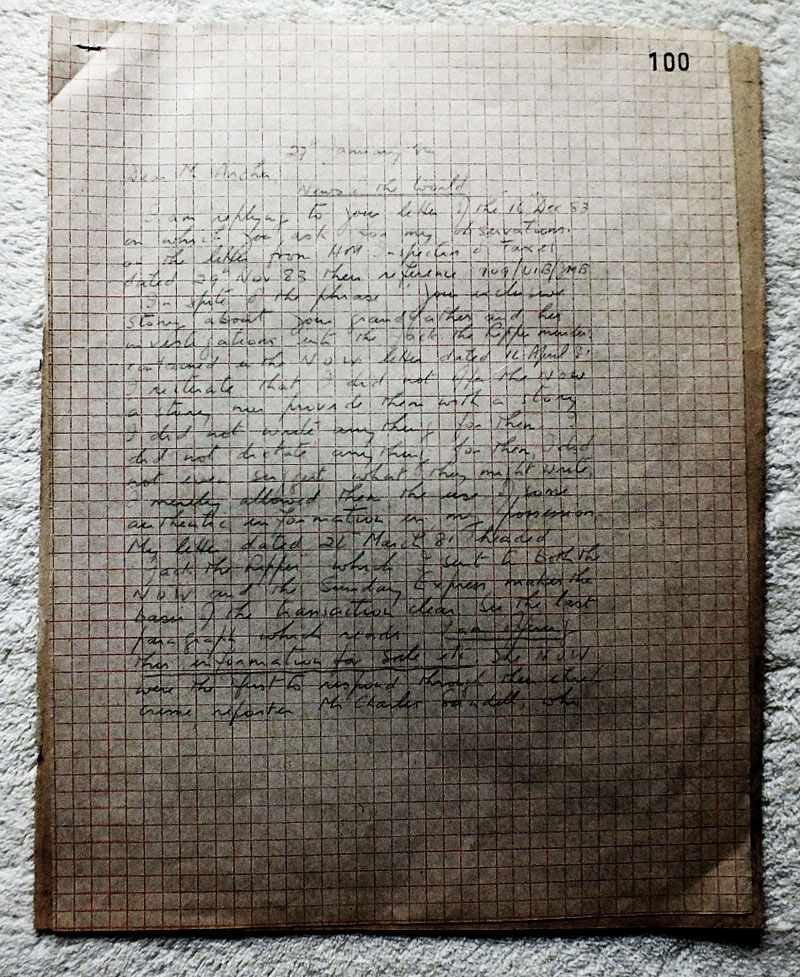 100
27 January
Dear Mr Archer,
News of the World
I am replying to your letter of the 16 Dec 83
in which you ask for my observations
on the letter from HM Inspector of Taxes
dated 29th Nov 83 their reference
In spite of the phrase 'your exclusive
story about your grandfather and his
investigations into the Jack the Ripper murders
contained in the NOW letter dated 16 April 81
I reiterate that I did not offer the NOW
a story nor provide them with a story
I did not write anything for them I
did not dictate anything for them, I did
not even suggest what they might write,
I merely allowed them the use of some
authentic information in my possession
My letter dated 26 March 81 headed
Jack the Ripper which I sent to both the
NOW and the Sunday Express makes the
basis of the transaction clear see the last
paragraph which reads I am offering
this information for sale etc The NOW
were the first to respond through their chief
crime reporter Mr Charles Sandell, who